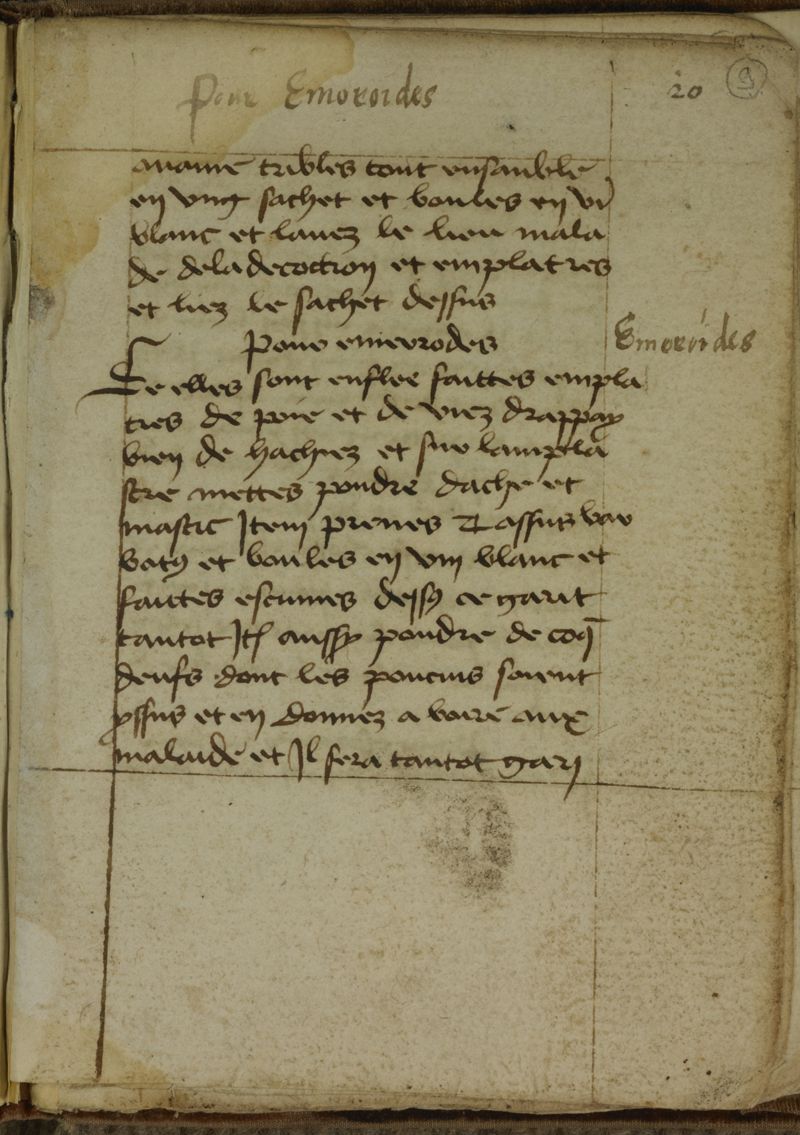 Pour Emoroides
20
9
auaine tribles tout ensamble
en vng sachet et boules en vi
blanc et lauez le lieu mala
de dela decoction et emplatres
et liez le sachet dessus
Pour emeurodes
Emoroides
Se elles sont enflee faittes empla
tres de poie et de viez drappax
bien de hachiez et sur lampla
stre mettes poudre dache et
mastic Item prenes
et boules en vin blanc et
faittes escumes dessus ce garit
tantot Itm aussy poudre de coq
deufs dont les poucins soient
yssus et en donnez a boire aux
malaide et Il sera tantot gari